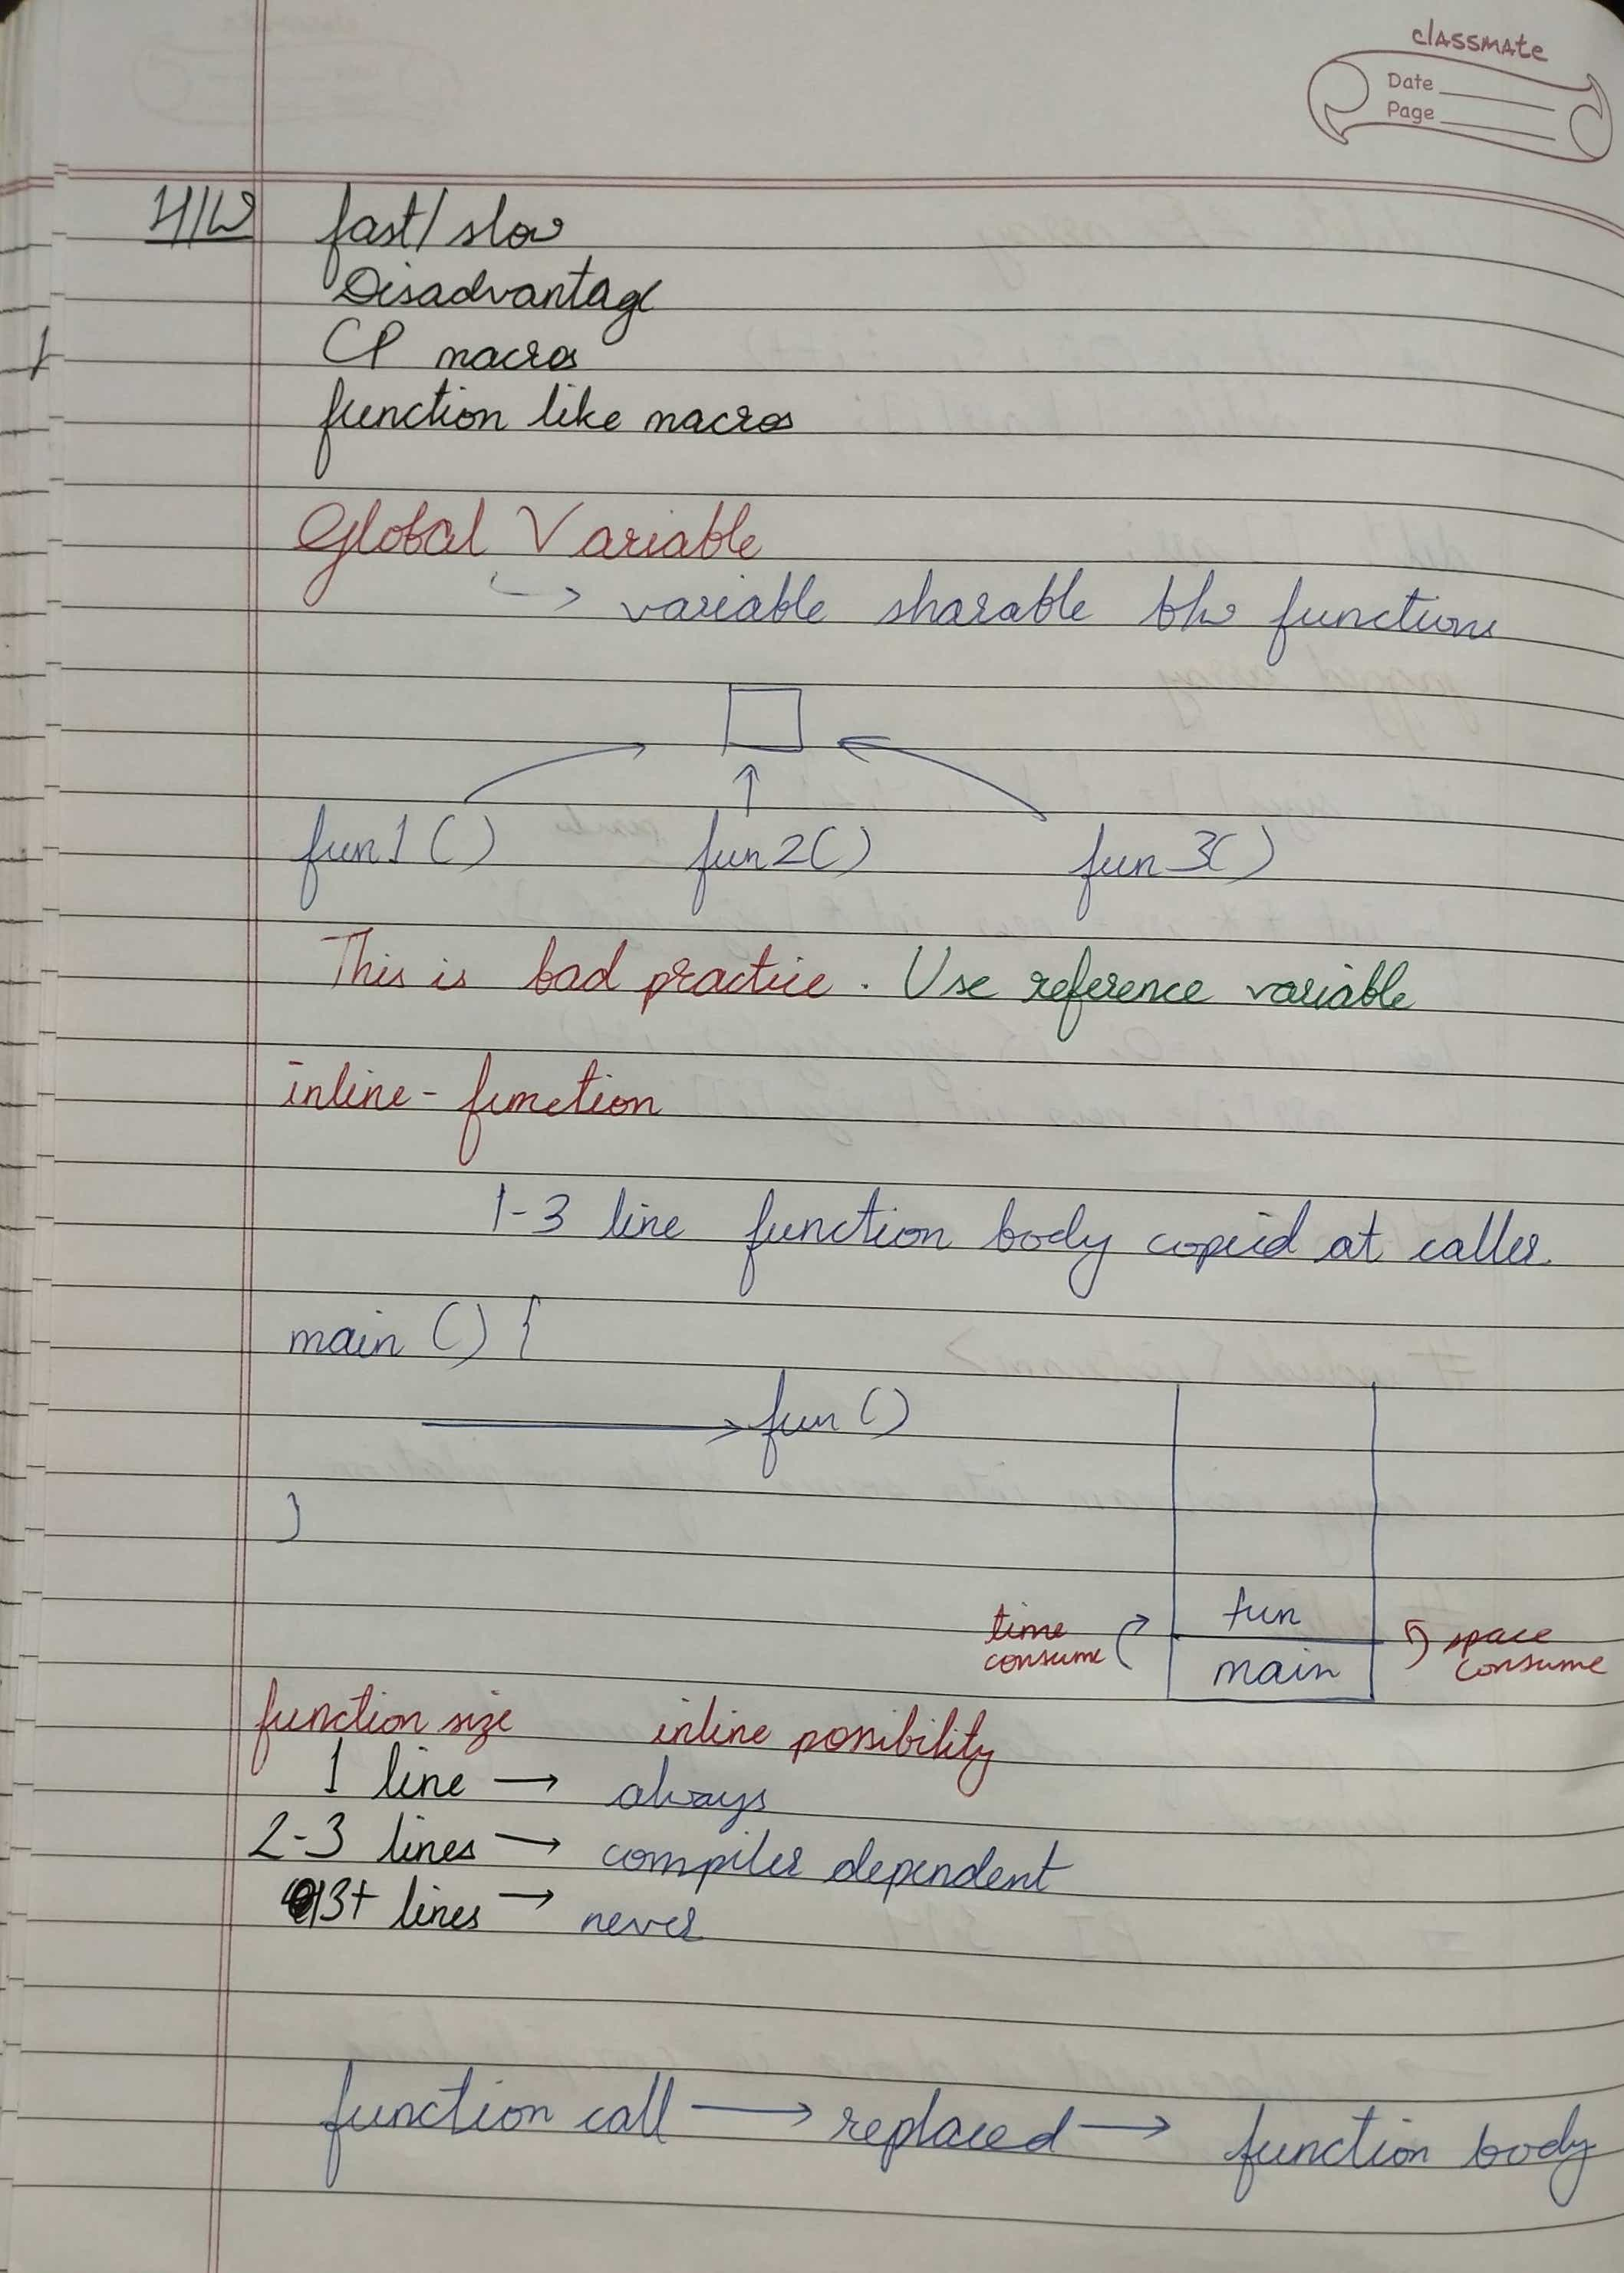 classmate
Date
Page
H/W fast/slow
Disadvantage
CP macros
function like macros
Global Variable
→ variable sharable btw functions
fun1() fun2() fun3()
This is bad practice. Use reference variable
inline-function
1-3 line function body copied at caller.
main () {
→ fun()
}
time consume
fun
main
space consume
function size inline possibility
1 line → always
2-3 lines → compiler dependent
3+ lines → never
function call → replaced → function body